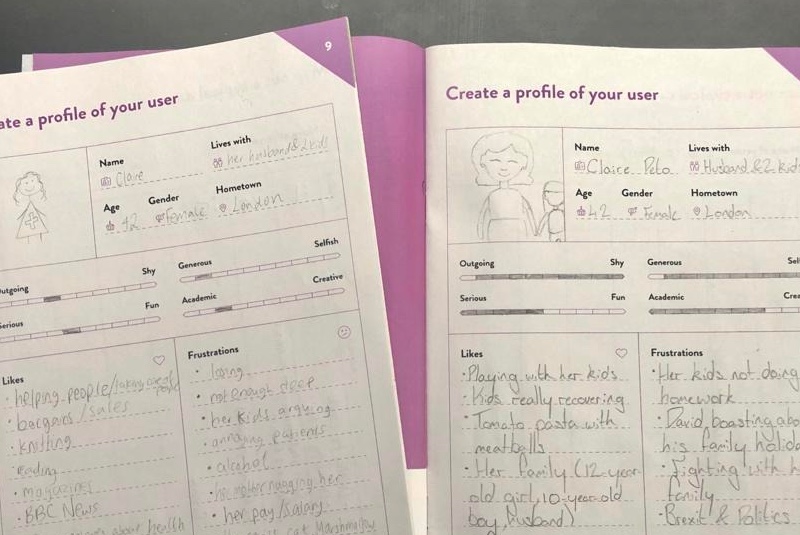 9
ate a profile of your user
Name
Claire
Lives with
her husband & 2 kids
Age
42
Gender
Female
Hometown
London
utgoing
Shy
Generous
Selfish
Serious
Fun
Academic
Creative
Likes
• helping people/taking care of
• bargains /sales
• knitting
• magazines
• BBC News
about health
Frustrations
• not enough sleep
• her kids arguing
• annoying patients
• alcohol
• her mother nagging her
• her pay/salary
Create a profile of your user
Name
Claire
Lives with
Husband & 2 kids
Age
42
Gender
Female
Hometown
London
Outgoing
Shy
Generous
Self
Serious
Fun
Academic
Crea
Likes
• Playing with her kids
• Kids really recovering
• Tomato pasta with
meatballs
• Her family (12-year-
old girl, 10-year-old
boy, husband)
Frustrations
• Her kids not doing
homework
• David boasting abo
his family holida
• Fighting with h
family
• Brexit & Politics